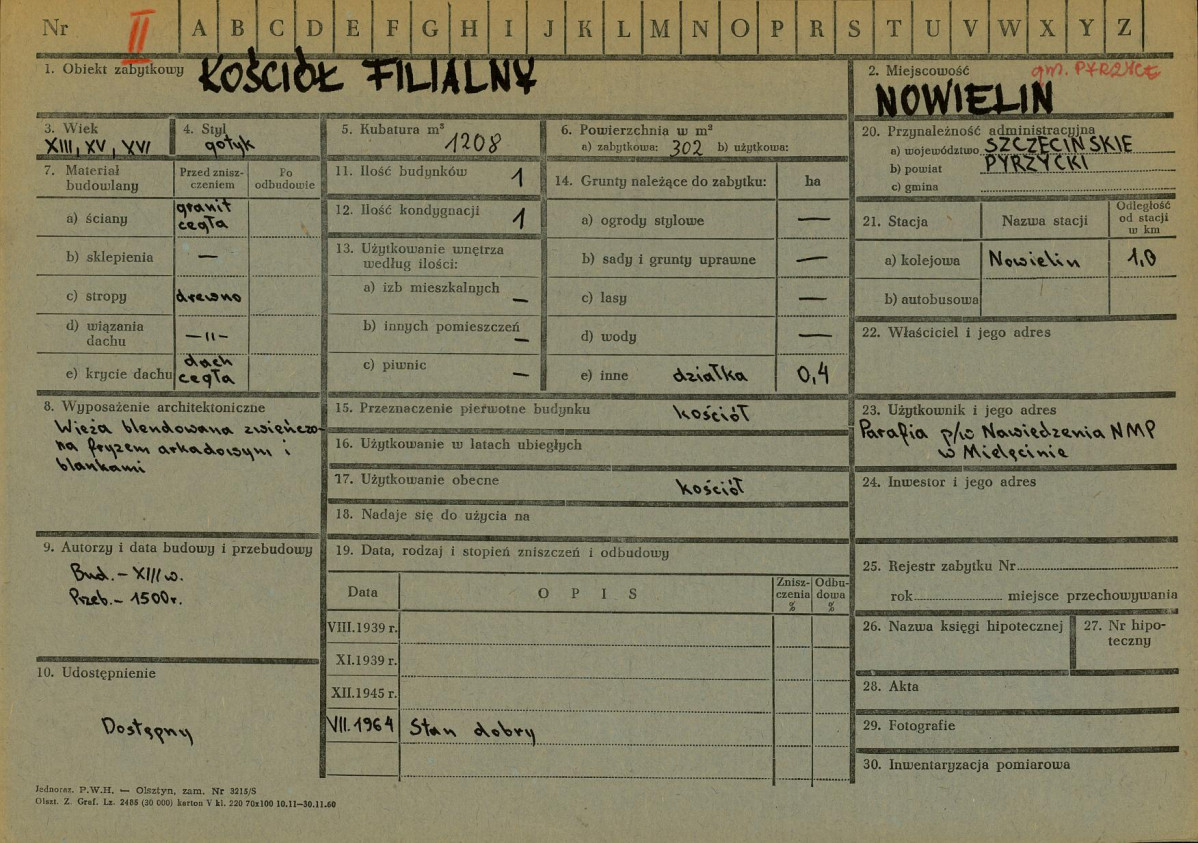 Nr II A B C D E F G H I J K L M N O P R S T U V W X Y Z
1. Obiekt zabytkowy KOŚCIÓŁ FILIALNY
2. Miejscowość gm. PYRZYCE
NOWIELIN
3. Wiek
XIII, XV, XVI
4. Styl
gotyk
5. Kubatura m³
1208
6. Powierzchnia w m²
a) zabytkowa: 302 b) użytkowa:
7. Materiał budowlany
Przed znisz-
czeniem
Po
odbudowie
a) ściany granit
cegła
b) sklepienia —
c) stropy drewno
d) wiązania
dachu —"—
e) krycie dachu dach
cegła
8. Wyposażenie architektoniczne
Wieża blendowana zwieńczo-
na fryzem arkadowym i
blankami
9. Autorzy i data budowy i przebudowy
Bud. – XIII w.
Przeb. – 1500 r.
10. Udostępnienie
Dostępny
11. Ilość budynków 1
12. Ilość kondygnacji 1
13. Użytkowanie wnętrza
według ilości:
a) izb mieszkalnych —
b) innych pomieszczeń —
c) piwnic —
14. Grunty należące do zabytku: ha
a) ogrody stylowe —
b) sady i grunty uprawne —
c) lasy —
d) wody —
e) inne działka 0,4
15. Przeznaczenie pierwotne budynku kościół
16. Użytkowanie w latach ubiegłych
17. Użytkowanie obecne kościół
18. Nadaje się do użycia na
19. Data, rodzaj i stopień zniszczeń i odbudowy
Data O P I S Znisz-
czenia
% Odbu-
dowa
%
VIII.1939 r.
XI.1939 r.
XII.1945 r.
VII.1964 Stan dobry
20. Przynależność administracyjna
a) województwo SZCZECIŃSKIE
b) powiat PYRZYCKI
c) gmina
21. Stacja Nazwa stacji Odległość
od stacji
w km
a) kolejowa Nowielin 1,0
b) autobusowa
22. Właściciel i jego adres
23. Użytkownik i jego adres
Parafia p/w Nawiedzenia NMP
w Mielęcinie
24. Inwestor i jego adres
25. Rejestr zabytku Nr
rok miejsce przechowywania
26. Nazwa księgi hipotecznej
27. Nr hipo-
teczny
28. Akta
29. Fotografie
30. Inwentaryzacja pomiarowa
Jednoraz. P.W.H. — Olsztyn, zam. Nr 3215/S
Olszt. Z. Graf. Lz. 2485 (30 000) karton V kl. 220 70x100 10.11—30.11.60